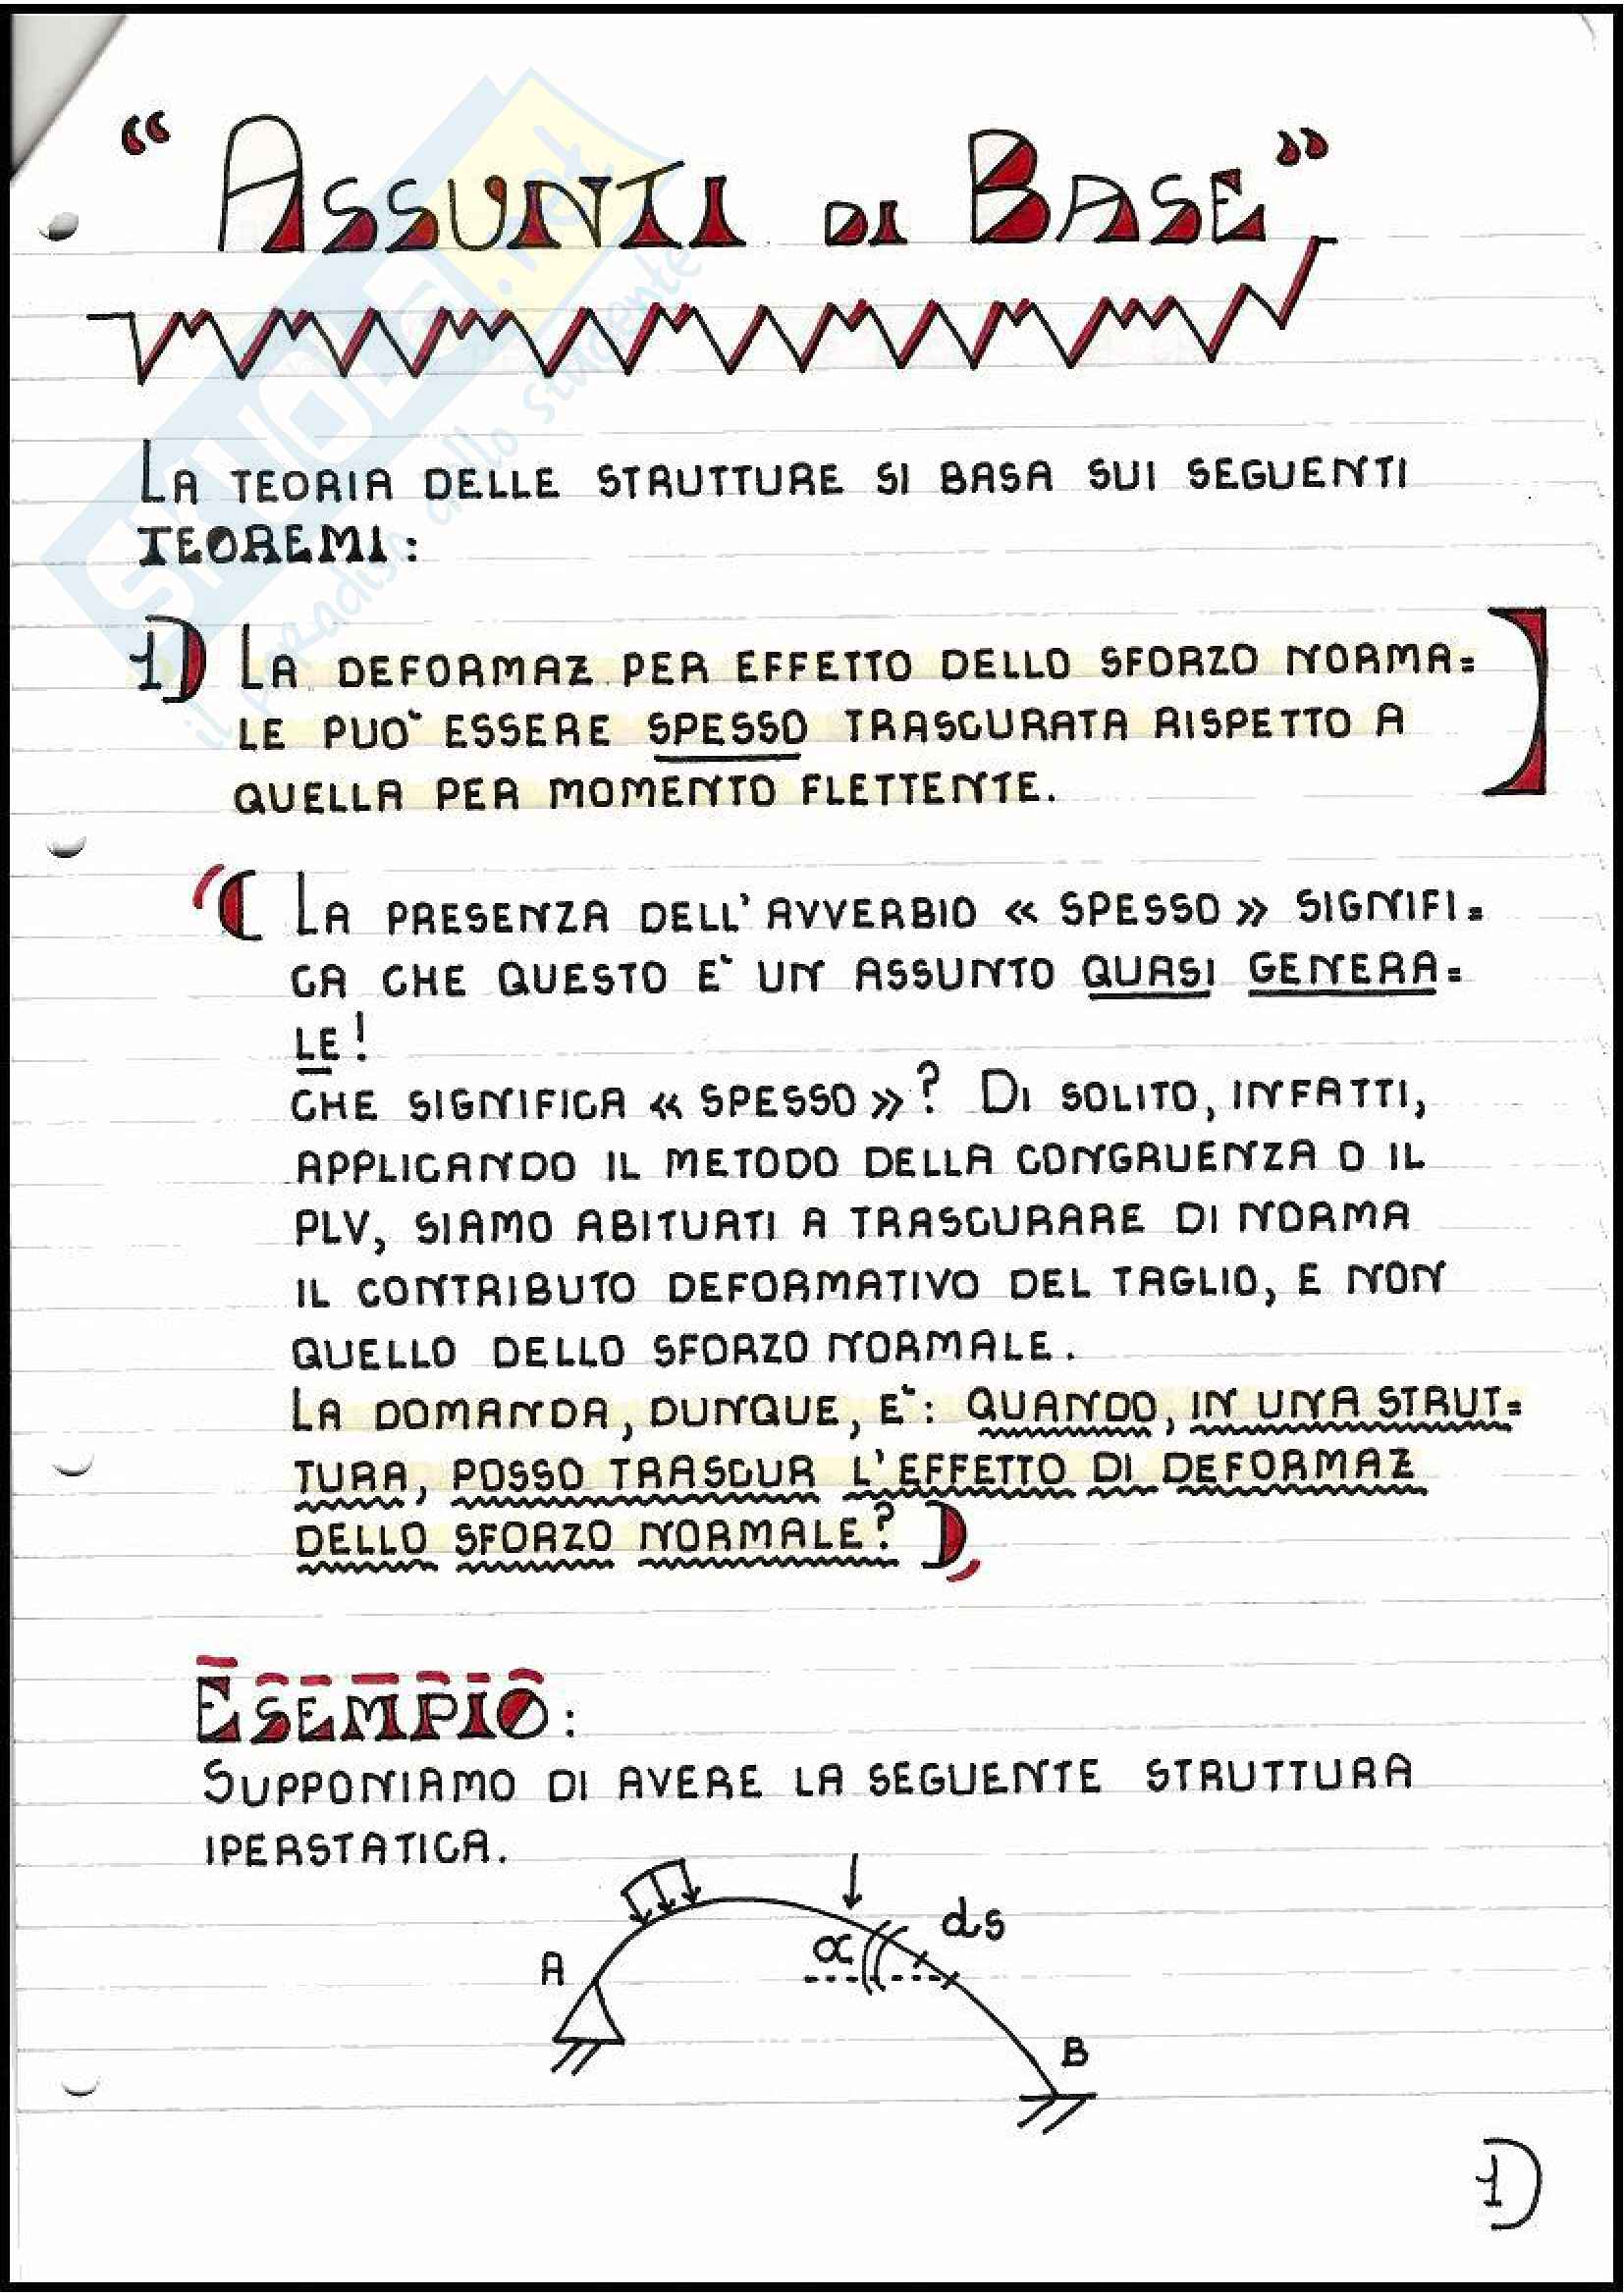 “ASSUNTI DI BASE”
LA TEORIA DELLE STRUTTURE SI BASA SUI SEGUENTI
TEOREMI:
1) LA DEFORMAZ. PER EFFETTO DELLO SFORZO NORMA=
LE PUO' ESSERE SPESSO TRASCURATA RISPETTO A
QUELLA PER MOMENTO FLETTENTE.
( LA PRESENZA DELL'AVVERBIO « SPESSO » SIGNIFI=
CA CHE QUESTO E' UN ASSUNTO QUASI GENERA=
LE!
CHE SIGNIFICA « SPESSO »? DI SOLITO, INFATTI,
APPLICANDO IL METODO DELLA CONGRUENZA O IL
PLV, SIAMO ABITUATI A TRASCURARE DI NORMA
IL CONTRIBUTO DEFORMATIVO DEL TAGLIO, E NON
QUELLO DELLO SFORZO NORMALE.
LA DOMANDA, DUNQUE, E': QUANDO, IN UNA STRUT=
TURA, POSSO TRASCUR L'EFFETTO DI DEFORMAZ
DELLO SFORZO NORMALE? )
ESEMPIO:
SUPPONIAMO DI AVERE LA SEGUENTE STRUTTURA
IPERSTATICA.
ds
α
A
B
1)
SKUOLA.net
il paradiso dello studente